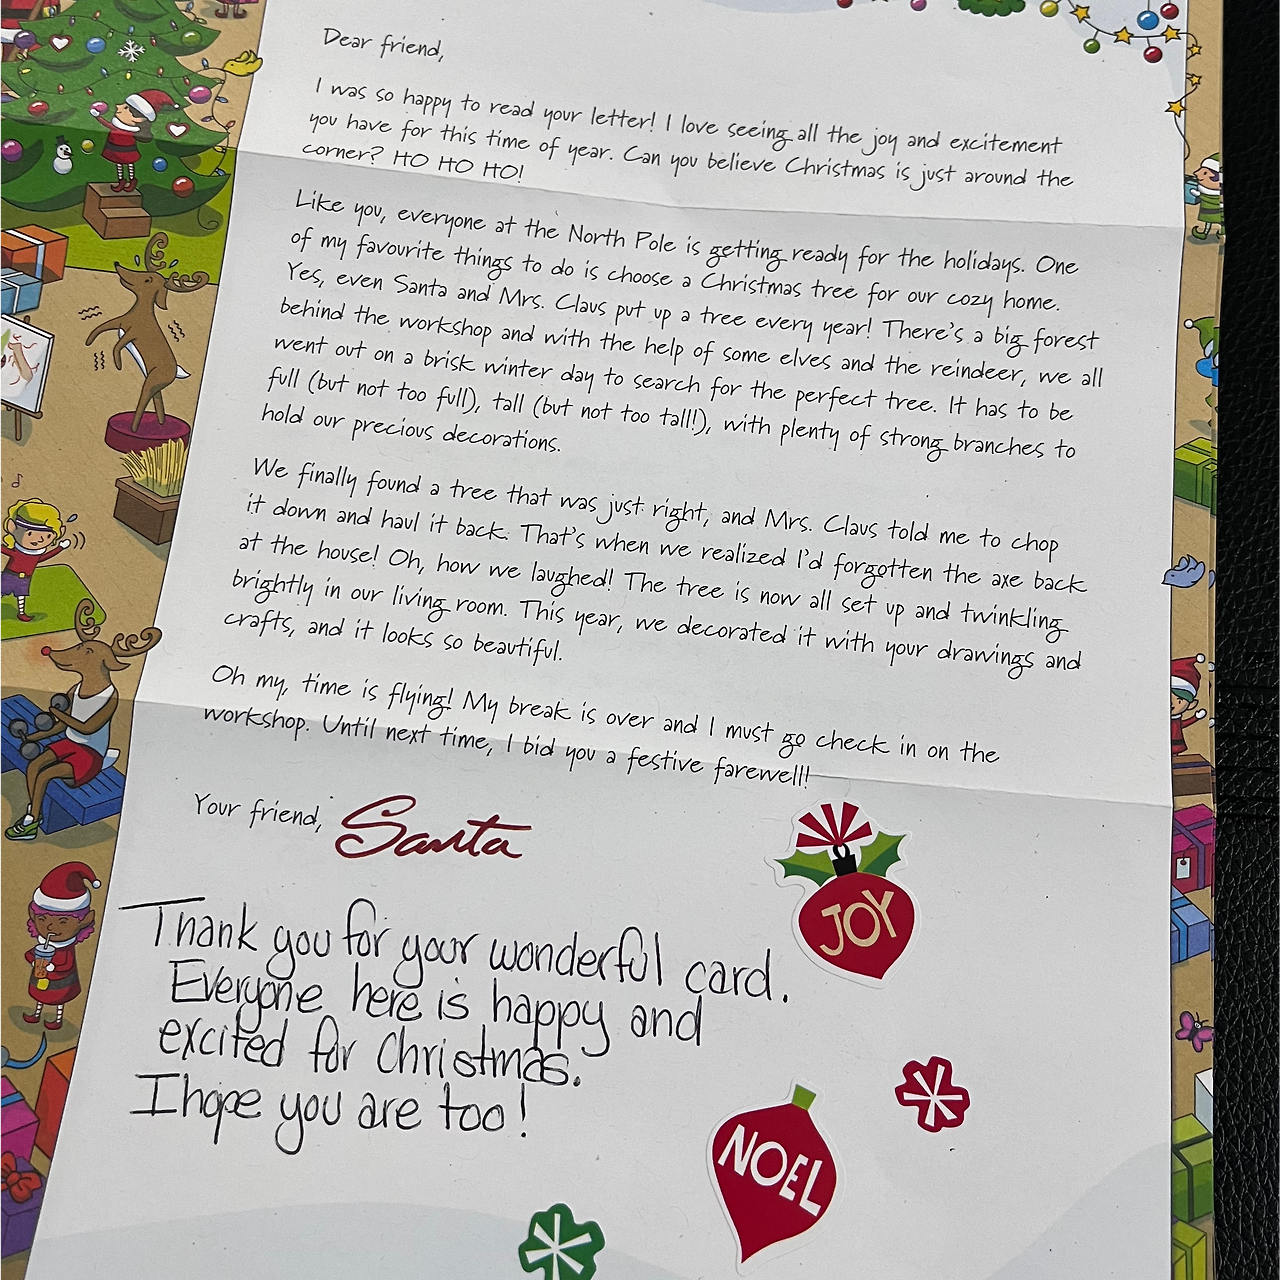 Dear friend,
I was so happy to read your letter! I love seeing all the joy and excitement
you have for this time of year. Can you believe Christmas is just around the
corner? HO HO HO!
Like you, everyone at the North Pole is getting ready for the holidays. One
of my favourite things to do is choose a Christmas tree for our cozy home.
Yes, even Santa and Mrs. Claus put up a tree every year! There's a big forest
behind the workshop and with the help of some elves and the reindeer, we all
went out on a brisk winter day to search for the perfect tree. It has to be
full (but not too full), tall (but not too tall!), with plenty of strong branches to
hold our precious decorations.
We finally found a tree that was just right, and Mrs. Claus told me to chop
it down and haul it back. That's when we realized I'd forgotten the axe back
at the house! Oh, how we laughed! The tree is now all set up and twinkling
brightly in our living room. This year, we decorated it with your drawings and
crafts, and it looks so beautiful.
Oh my, time is flying! My break is over and I must go check in on the
workshop. Until next time, I bid you a festive farewell!
Your friend, Santa
Thank you for your wonderful card.
Everyone here is happy and
excited for Christmas.
I hope you are too!
JOY
NOEL